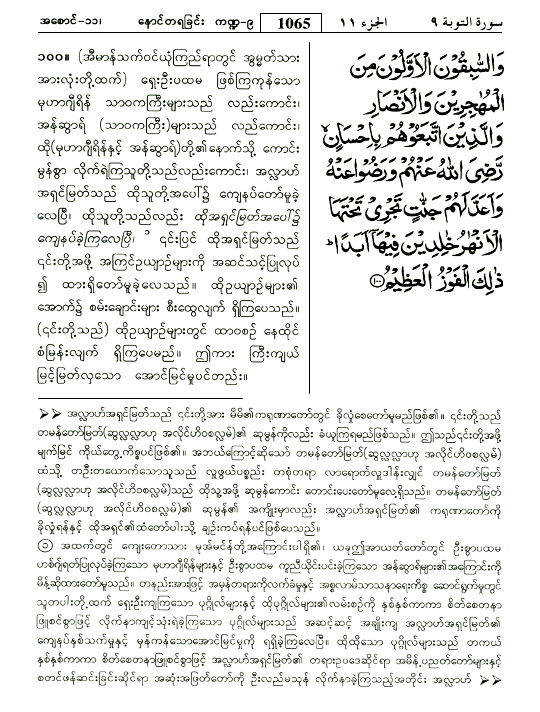 အစောင်-၁၁၊ နောင်တရခြင်း ကဏ္ဍ-၉ 1065 الجزء ١١ سورة التوبة ٩
၁၀၀။ (အီမာန်သက်ဝင်ယုံကြည်ရာတွင် အွမ္မတ်သား
အားလုံးတို့ထက်) ရှေးဦးပထမ ဖြစ်ကြကုန်သော
မုဟာဂျိရီန် သာဝကကြီးများသည် လည်းကောင်း၊
အန်ဆွာရ် (သာဝကကြီး)များသည် လည်းကောင်း၊
ထို(မုဟာဂျိရီန်နှင့် အန်ဆွာရ်)တို့၏နောက်သို့ ကောင်း
မွန်စွာ လိုက်ရဲကြသူတို့သည်လည်းကောင်း၊ အလ္လာဟ်
အရှင်မြတ်သည် ထိုသူတို့အပေါ်၌ ကျေနပ်တော်မူခဲ့
လေပြီ၊ ထိုသူတို့သည်လည်း ထိုအရှင်မြတ်အပေါ်၌
ကျေနပ်ခဲ့ကြလေပြီ၊ ၁ ၎င်းပြင် ထိုအရှင်မြတ်သည်
၎င်းတို့အဖို့ အကြင်ဥယျာဉ်များကို အဆင်သင့်ပြုလုပ်
၍ ထားရှိတော်မူခဲ့လေသည်။ ထိုဥယျာဉ်များ၏
အောက်၌ စမ်းချောင်းများ စီးတွေလျက် ရှိကြပေသည်။
(၎င်းတို့သည်) ထိုဥယျာဉ်များတွင် ထာဝစဉ် နေထိုင်
စံမြန်းလျက် ရှိကြပေမည်။ ဤကား ကြီးကျယ်
မြင့်မြတ်လှသော အောင်မြင်မှုပင်တည်း။
وَالسّٰبِقُوْنَ الْاَوَّلُوْنَ مِنَ
الْمُهٰجِرِيْنَ وَالْاَنْصَارِ
وَالَّذِيْنَ اتَّبَعُوْهُمْ بِاِحْسَانٍ
رَّضِىَ اللّٰهُ عَنْهُمْ وَرَضُوْا عَنْهُ
وَاَعَدَّ لَهُمْ جَنّٰتٍ تَجْرِىْ تَحْتَهَا
الْاَنْهٰرُ خٰلِدِيْنَ فِيْهَآ اَبَدًا ؕ
ذٰلِكَ الْفَوْزُ الْعَظِيْمُ ۝١٠٠
➢➢ အလ္လာဟ်အရှင်မြတ်သည် ၎င်းတို့အား မိမိ၏ကရုဏာတော်တွင် ခိုလှုံစေတော်မူမည်ဖြစ်၏။ ၎င်းတို့သည်
တမန်တော်မြတ်(ဆွလ္လလ္လာဟု အလိုင်ဟိဝစလ္လမ်)၏ ဆုမွန်ကိုလည်း ခံယူကြရမည်ဖြစ်သည်။ ဤသည်၎င်းတို့အဖို့
မျက်မြင် ကိုယ်တွေ့ကိစ္စပင်ဖြစ်၏။ အဘယ်ကြောင့်ဆိုသော် တမန်တော်မြတ် (ဆွလ္လလ္လာဟု အလိုင်ဟိဝစလ္လမ်)
ထံသို့ တဦးတယောက်သောသူသည် လှူဖွယ်ပစ္စည်း တစုံတရာ လာရောက်လှူဒါန်းလျှင် တမန်တော်မြတ်
(ဆွလ္လလ္လာဟု အလိုင်ဟိဝစလ္လမ်)သည် ထိုသူ့အဖို့ ဆုမွန်ကောင်း တောင်းပေးတော်မူလေ့ရှိသည်။ တမန်တော်မြတ်
(ဆွလ္လလ္လာဟု အလိုင်ဟိဝစလ္လမ်)၏ ဆုမွန်၏ အကျိုးမှာလည်း အလ္လာဟ်အရှင်မြတ်၏ ကရုဏာတော်ကို
ခိုလှုံရန်နှင့် ထိုအရှင်၏ထံတော်ပါးသို့ ချဉ်းကပ်ရန်ပင်ဖြစ်ပေသည်။
၁ အထက်တွင် ကျေးတောသား မုအ်မင်န်တို့အကြောင်းပါရှိ၏၊ ယခုဤအာယတ်တော်တွင် ဦးစွာပထမ
ဟစ်ဂျ်ရတ်ပြုလုပ်ခဲ့ကြသော မုဟာဂျိရီန်များနှင့် ဦးစွာပထမ ကူညီသိုင်းပင်းခဲ့ကြသော အန်ဆွာရ်များ၏အကြောင်းကို
မိန့်ဆိုထားတော်မူသည်။ တနည်းအားဖြင့် အမှန်တရားကိုလက်ခံမှုနှင့် အစ္စလာမ်သာသနာရေးကိစ္စ ဆောင်ရွက်မှုတွင်
သူတပါးတို့ထက် ရှေးဦးကျကြသော ပုဂ္ဂိုလ်များနှင့် ထိုပုဂ္ဂိုလ်များ၏လမ်းစဉ်ကို နှစ်နှစ်ကာကာ စိတ်စေတနာ
ဖြူစင်စွာဖြင့် လိုက်နာကျင့်သုံးရဲခဲ့ကြသော ပုဂ္ဂိုလ်များသည် အဆင့်ဆင့် အချိုးကျ အလ္လာဟ်အရှင်မြတ်၏
ကျေနပ်နှစ်သက်မှုနှင့် မှန်ကန်သောအောင်မြင်မှုကို ရရှိခဲ့ကြလေပြီ။ ထိုထိုသော ပုဂ္ဂိုလ်များသည် တကယ်
နှစ်နှစ်ကာကာ စိတ်စေတနာဖြူစင်စွာဖြင့် အလ္လာဟ်အရှင်မြတ်၏ တရားဥပဒေဆိုင်ရာ အမိန့်ပညတ်တော်များနှင့်
စတင်ဖန်ဆင်းခြင်းဆိုင်ရာ အဆုံးအဖြတ်တော်ကို ဦးလည်မသုန် လိုက်နာခဲ့ကြသည့်အတိုင်း အလ္လာဟ် ➢➢